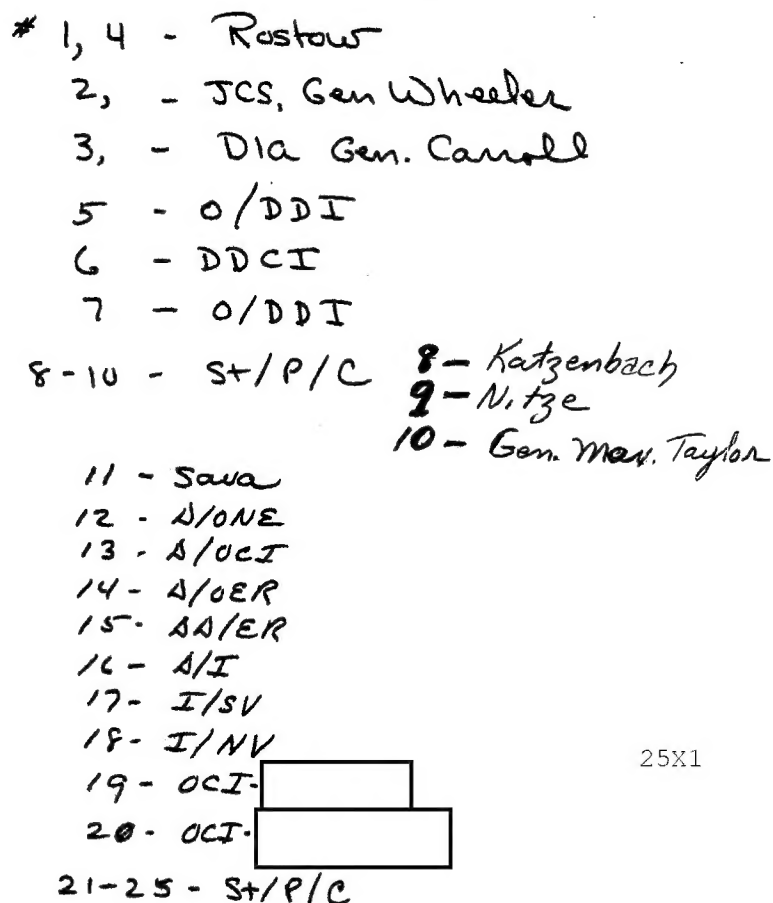 * 1, 4 - Rostow
2, - JCS, Gen Wheeler
3, - DIA Gen. Carroll
5 - O/DDI
6 - DDCI
7 - O/DDI
8-10 - St/P/C
8 - Katzenbach
9 - Nitze
10 - Gen. Max. Taylor
11 - Sava
12 - D/ONE
13 - D/OCI
14 - D/OER
15 - DD/ER
16 - D/I
17 - I/SV
18 - I/NV
19 - OCI-
25X1
20 - OCI-
21-25 - St/P/C